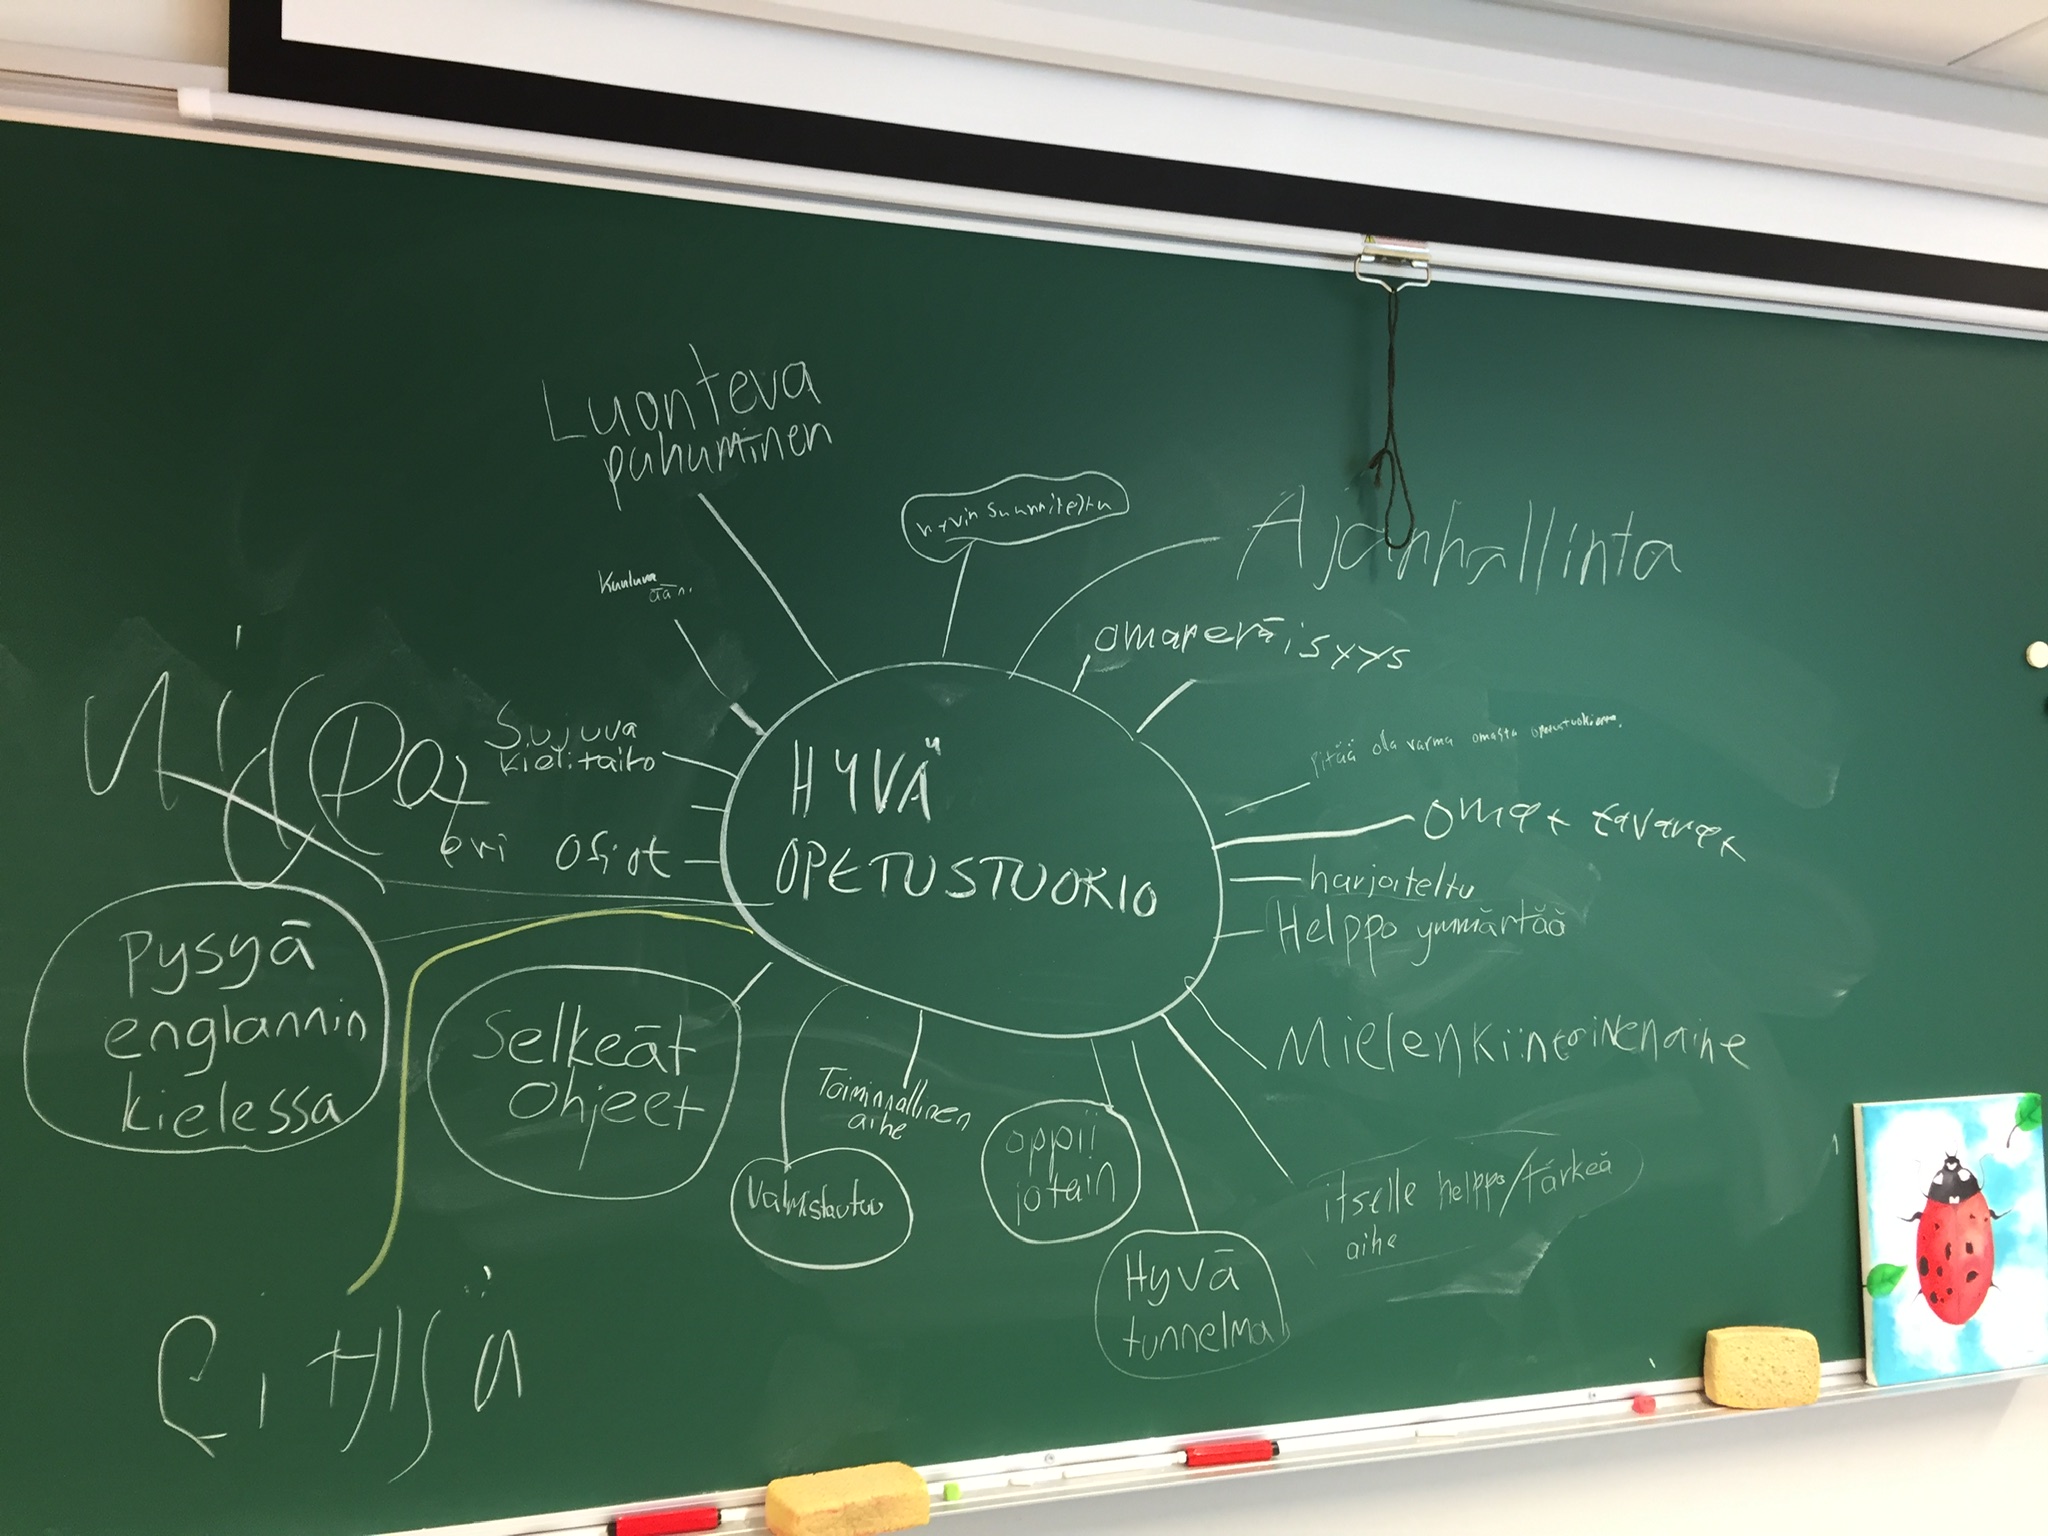 Luonteva
puhuminen
hyvin suunniteltu
Ajanhallinta
Kuuluva
ääni
omaperäisyys
Sujuva
kielitaito
HYVÄ
OPETUSTUOKIO
pitää olla varma omasta
omat tavarat
eri osiot
harjoiteltu
Helppo ymmärtää
pysyä
englannin
kielessä
Selkeät
Ohjeet
Toiminnallinen
aihe
Mielenkiintoinen aihe
Valmistautuu
oppii
jotain
itselle helppo/tärkeä
aihe
Hyvä
tunnelma